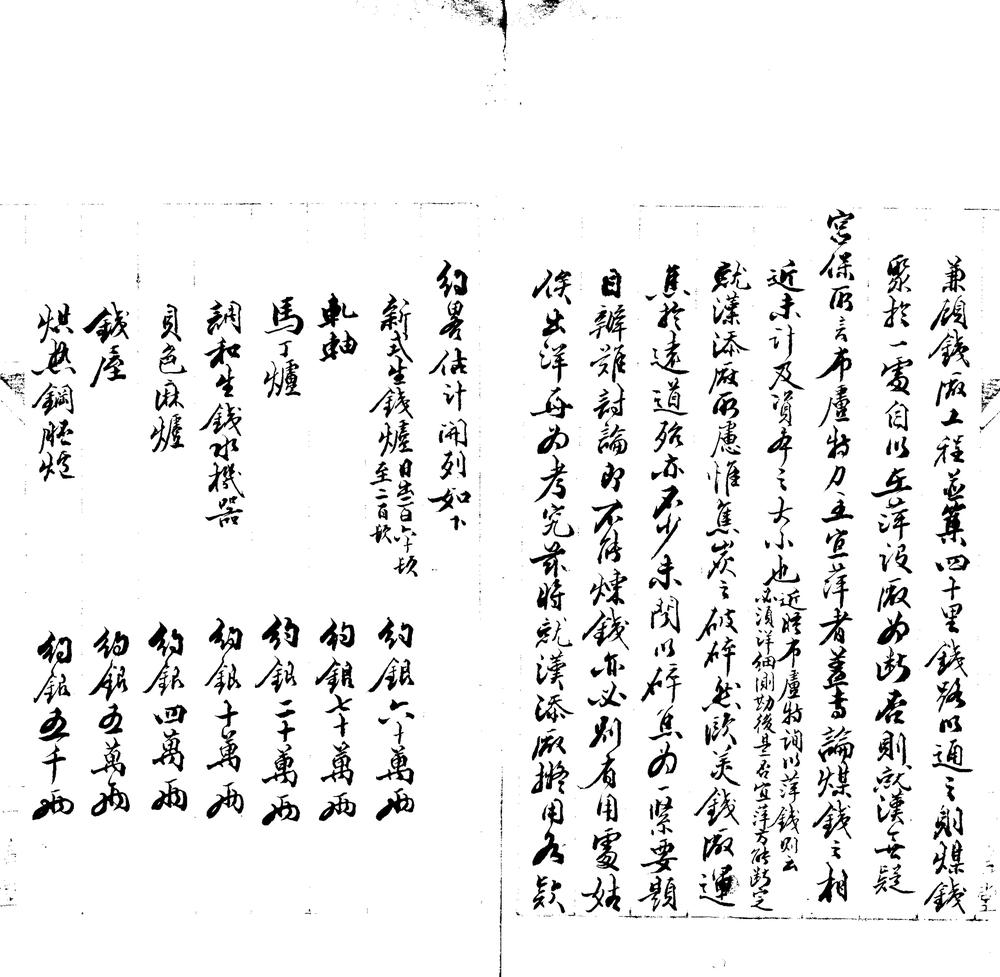 兼顧鐵廠工程並築四十里鐵路以通之則煤鐵
聚於一處自以在萍設廠為斷否則就漢無疑
宮保所言布盧特力主宜萍者蓋專論煤鐵之相
近未計及資本之大小也近聘布盧特詢以萍鐵則云
必須詳細測勘後是否宜萍方能斷定
就漢添廠所慮惟焦炭之破碎然歐美鐵廠運
焦於遠道殆亦不少未聞以碎焦為一緊要題
目辯難討論即不能煉鐵亦必別有用處姑
俟出洋再為考究茲將就漢添廠擬用各款
約畧估計開列如下
新式生鐵爐日出一百六十噸
至二百噸 約銀六十萬兩
軋軸 約銀七十萬兩
馬丁爐 約銀二十萬兩
調和生鐵水機器 約銀十萬兩
貝色麻爐 約銀四萬兩
鐵屋 約銀五萬兩
烘熱鋼胚爐 約銀五千兩